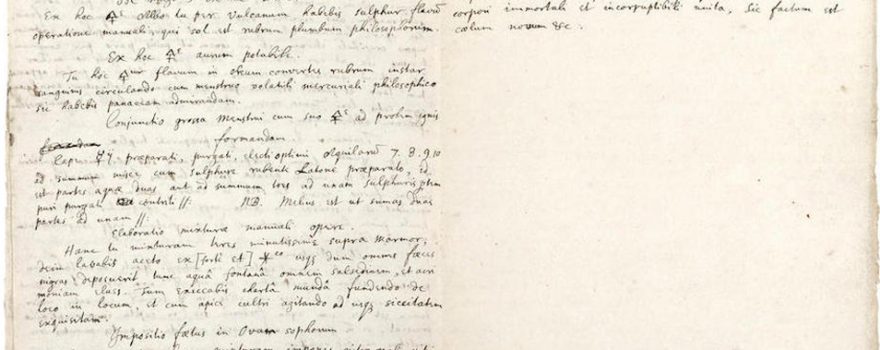 Ex hoc 🜍e albo tu per vulcanum habebis sulphur flavum
operatione manuali, qui sol est rubrum plumbum philosophorum.
Ex hoc 🜍e aurum potabile.
Tu hoc 🜍ur flavum in oleum convertes rubrum instar
sanguinis circulando cum menstruo volatili mercuriali philosophico
sic habebis panaceam admirandam.
Conjunctio grossa menstrui cum suo 🜍e ad prolem ignis
formandam.
Cape ☿ij præparati, purgati, electi optimi aquilarū 7. 8. 9. 10
ad summum misce cum sulphure rubente Latone præparato, id
est partes aquæ duas aut ad summum tres ad unam sulphuris ptem
puri purgati contriti //: NB. Melius est ut sumas duas
partes ad unam //:
Elaboratio mixturæ manuali opere.
Hanc tu mixturam teres minutissime supra marmor,
dein lavabis aceto ex [forti et] co usq dum omnes fæces
nigras deposuerit tunc aquâ fontanâ omnem salsedinem, et acri
moniam elues. Tum exiccabis chartâ mundâ fundendo de
loco in locum, et cum apici cultri agitando ad usq siccitatem
exquisitam.
Impositio fœtus in Ovum sophorum
mixturam
corpori immortali et incorruptibili unita, sic factum est
cœlum novum &c.